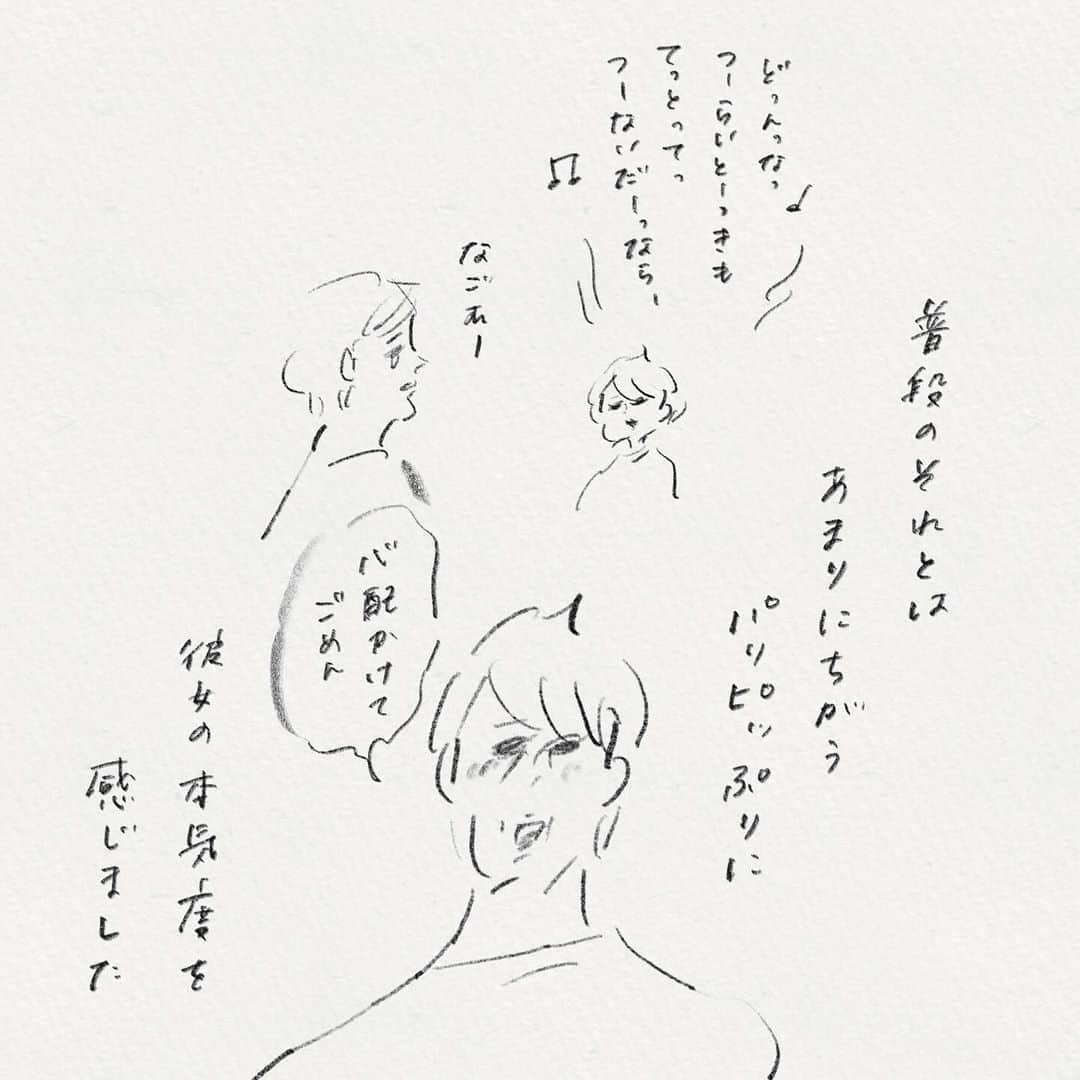 普段のそれとは
あまりにちがう
パリピッぷりに
どっんっなっ
つーらいとーっきも
てっとってっ
つーないだーっなら、
なごむー
心配かけて
ごめん
彼女の本気度を
感じました